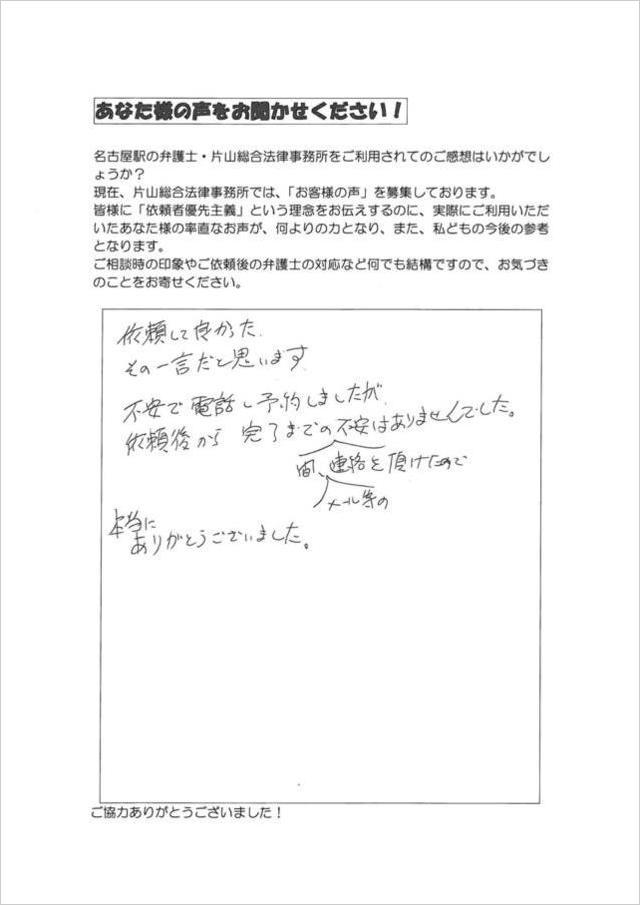 あなた様の声をお聞かせください！
名古屋駅の弁護士・片山総合法律事務所をご利用されてのご感想はいかがでし
ょうか？
現在、片山総合法律事務所では、「お客様の声」を募集しております。
皆様に「依頼者優先主義」という理念をお伝えするのに、実際にご利用いただ
いたあなた様の率直なお声が、何よりの力となり、また、私どもの今後の参考
となります。
ご相談時の印象やご依頼後の弁護士の対応など何でも結構ですので、お気づき
のことをお寄せください。
依頼して良かった.
その一言だと思います
不安で電話し予約しましたが
依頼後から 完了までの不安はありませんでした。
間、連絡を頂けたので
メール等の
本当に
ありがとうございました。
ご協力ありがとうございました！